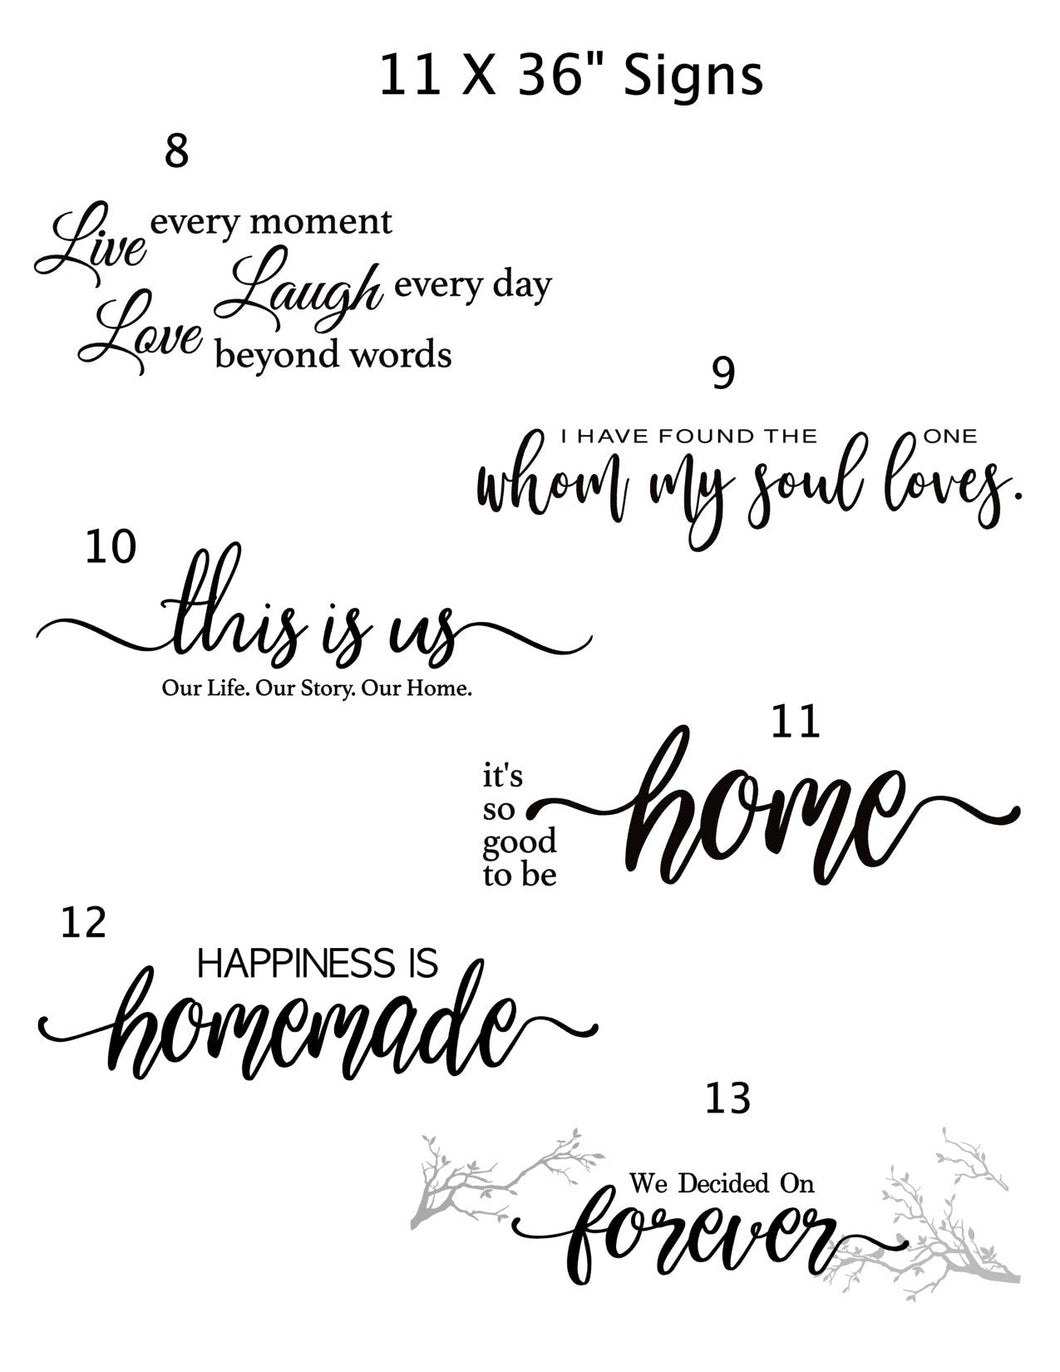 11 X 36" Signs
8
Live every moment
Laugh every day
Love beyond words
9
I HAVE FOUND THE ONE
whom my soul loves.
10
this is us
Our Life. Our Story. Our Home.
11
it's
so
good
to be
home
12
HAPPINESS IS
homemade
13
We Decided On
forever